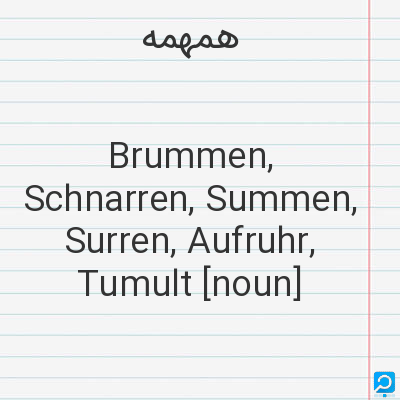 همهمه
Brummen,
Schnarren, Summen,
Surren, Aufruhr,
Tumult [noun]